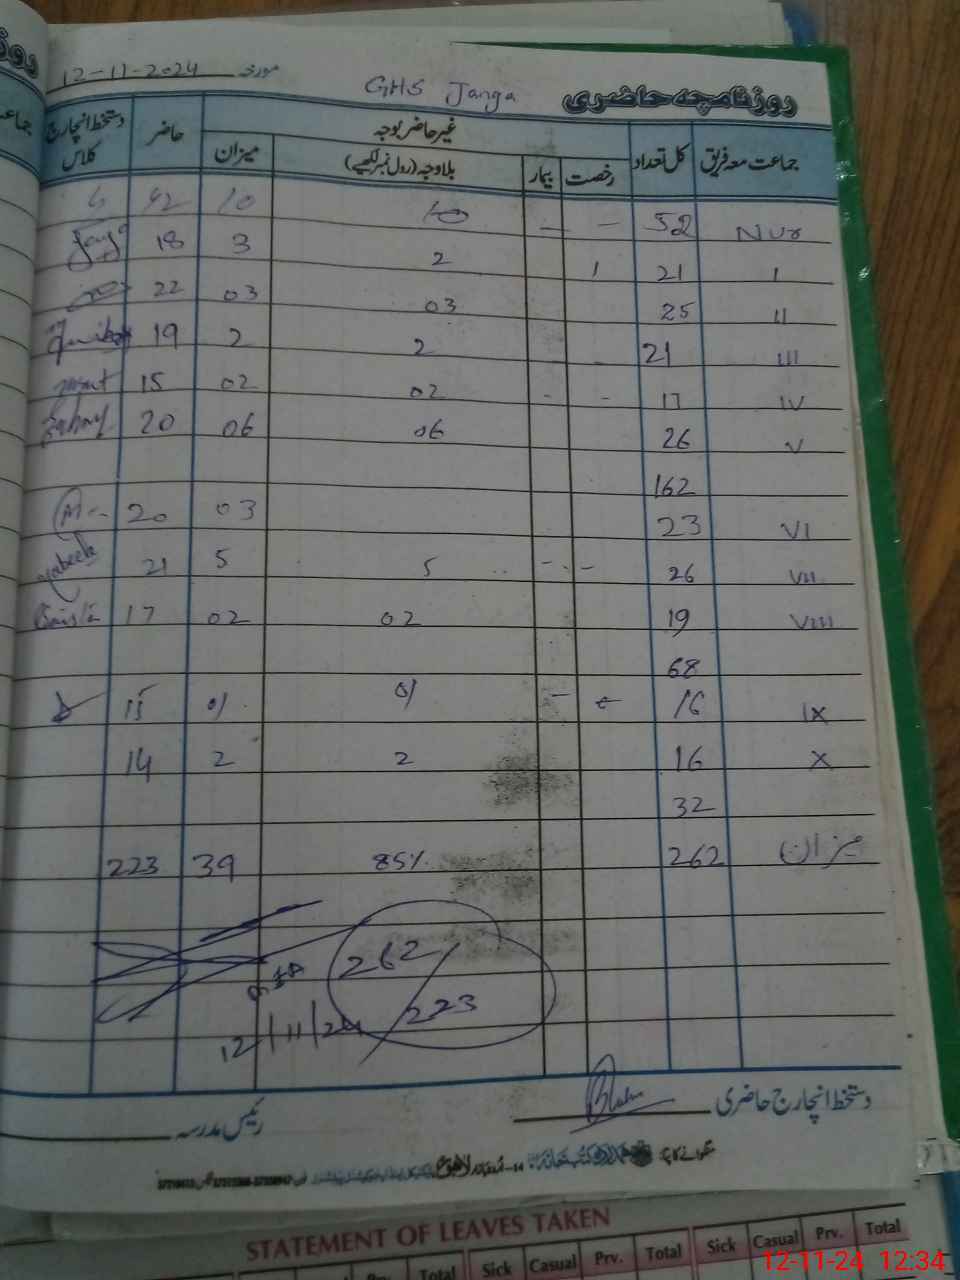 روزنامچہ حاضری GHS Janga مورخہ 12-11-2024
جماعت معہ فریق کل تعداد غیر حاضر بوجہ حاضر دستخط انچارج کلاس
رخصت بیمار بلاوجہ (رول نمبر لکھیے) میزان
Nur 52 - - 10 10 42
I 21 1 2 3 18
II 25 03 03 22
III 21 - 2 2 19
IV 17 - - 02 02 15
V 26 06 06 20
162
VI 23 03 20
VII 26 - - 5 5 21
VIII 19 02 02 17
68
IX 16 - - 01 01 15
X 16 2 2 14
32
میزان 262 85% 39 223
262/223
12/11/24
دستخط انچارج حاضری
رئیس مدرسہ
STATEMENT OF LEAVES TAKEN
Sick Casual Prv. Total Sick Casual Prv. Total
12-11-24 12:34